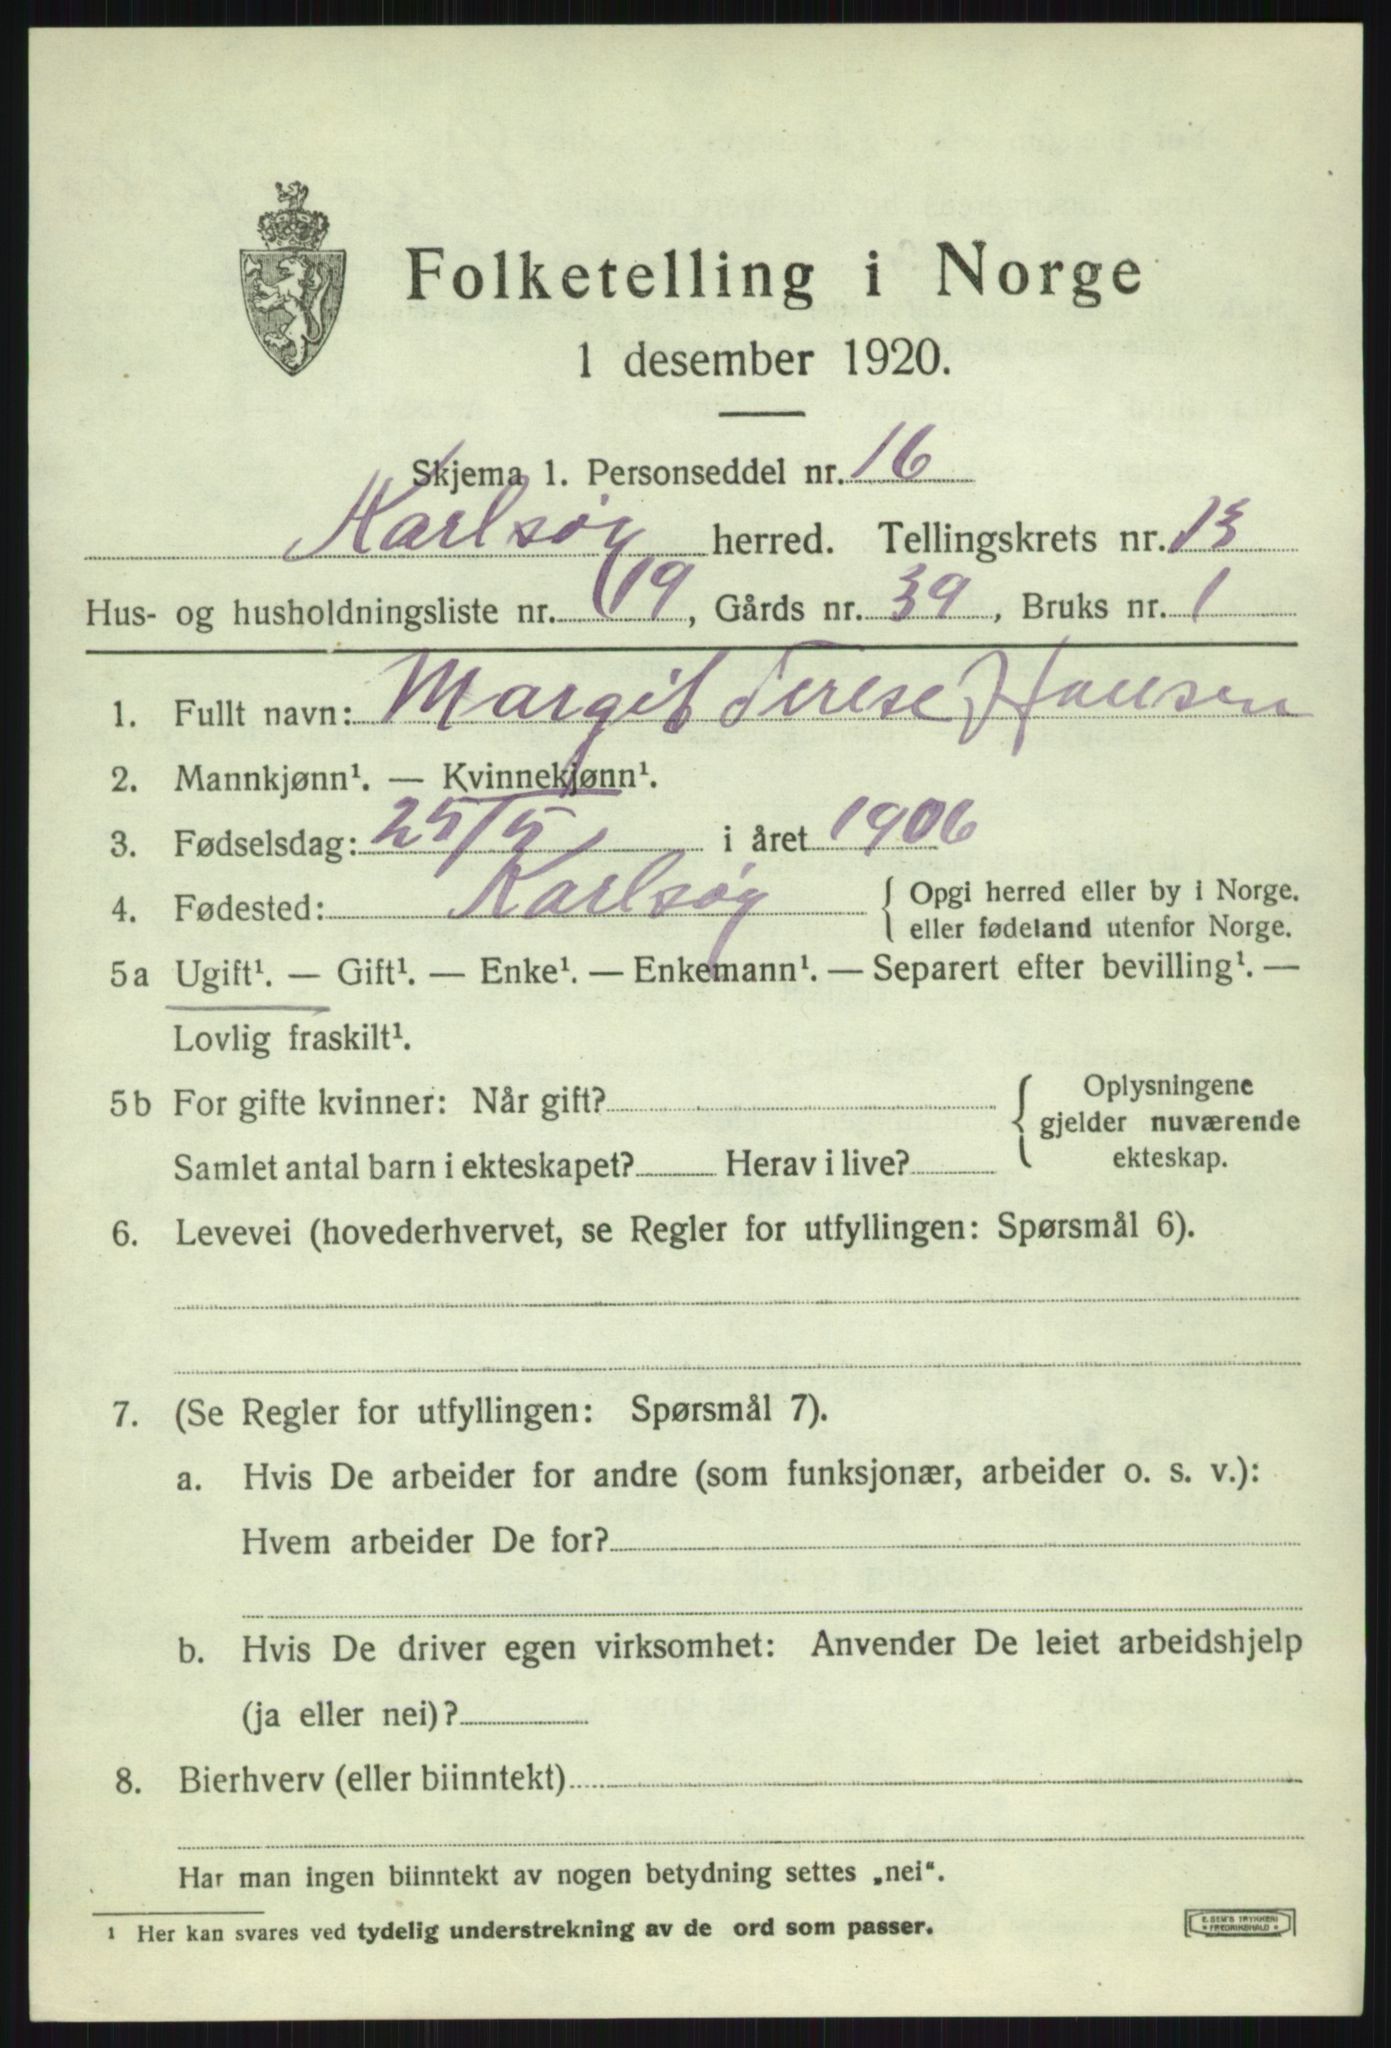 Folketelling i Norge
1 desember 1920.
Skjema 1. Personseddel nr. 16
Karlsøy herred. Tellingskrets nr. 13
Hus- og husholdningsliste nr. 19, Gårds nr. 39, Bruks nr. 1
1. Fullt navn: Margit Terese Hansen
2. Mannkjønn¹. — Kvinnekjønn¹.
3. Fødselsdag: 25/5 i året 1906
4. Fødested: Karlsøy { Opgi herred eller by i Norge.
eller fødeland utenfor Norge.
5a Ugift¹. — Gift¹. — Enke¹. — Enkemann¹. — Separert efter bevilling¹. —
Lovlig fraskilt¹.
5b For gifte kvinner: Når gift? { Oplysningene
gjelder nuværende
Samlet antal barn i ekteskapet? Herav i live? ekteskap.
6. Levevei (hovederhvervet, se Regler for utfyllingen: Spørsmål 6).
7. (Se Regler for utfyllingen: Spørsmål 7).
a. Hvis De arbeider for andre (som funksjonær, arbeider o. s. v.):
Hvem arbeider De for?
b. Hvis De driver egen virksomhet: Anvender De leiet arbeidshjelp
(ja eller nei)?
8. Bierhverv (eller biinntekt)
Har man ingen biinntekt av nogen betydning settes „nei“.
¹ Her kan svares ved tydelig understrekning av de ord som passer.
E. SEM'S TRYKKERI
* FREDRIKSHALD *